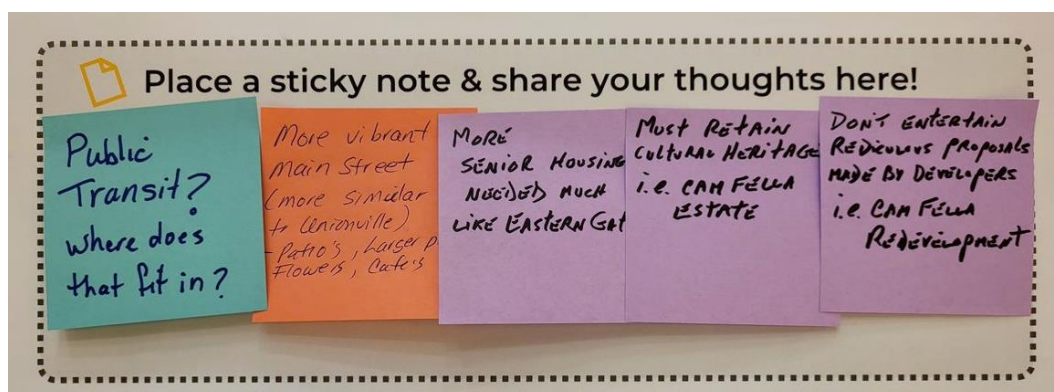 Place a sticky note & share your thoughts here!
Public
Transit?
where does
that fit in?
More vibrant
Main Street
(more similar
to Unionville)
- Patio's, Larger
Flowers, Cafe's
MORE
SENIOR HOUSING
NEEDED MUCH
LIKE EASTERN GAT
MUST RETAIN
CULTURAL HERITAGE
i.e. CAM FELLA
ESTATE
DON'T ENTERTAIN
REDICULUS PROPOSALS
MADE BY DEVELOPERS
i.e. CAM FELLA
REDEVELOPMENT